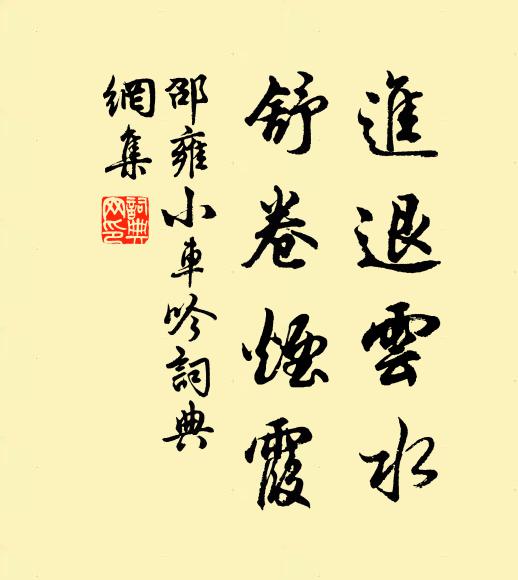 進退雲水
舒卷煙霞
邵雍小車吟詞典
網集
詞典
网印